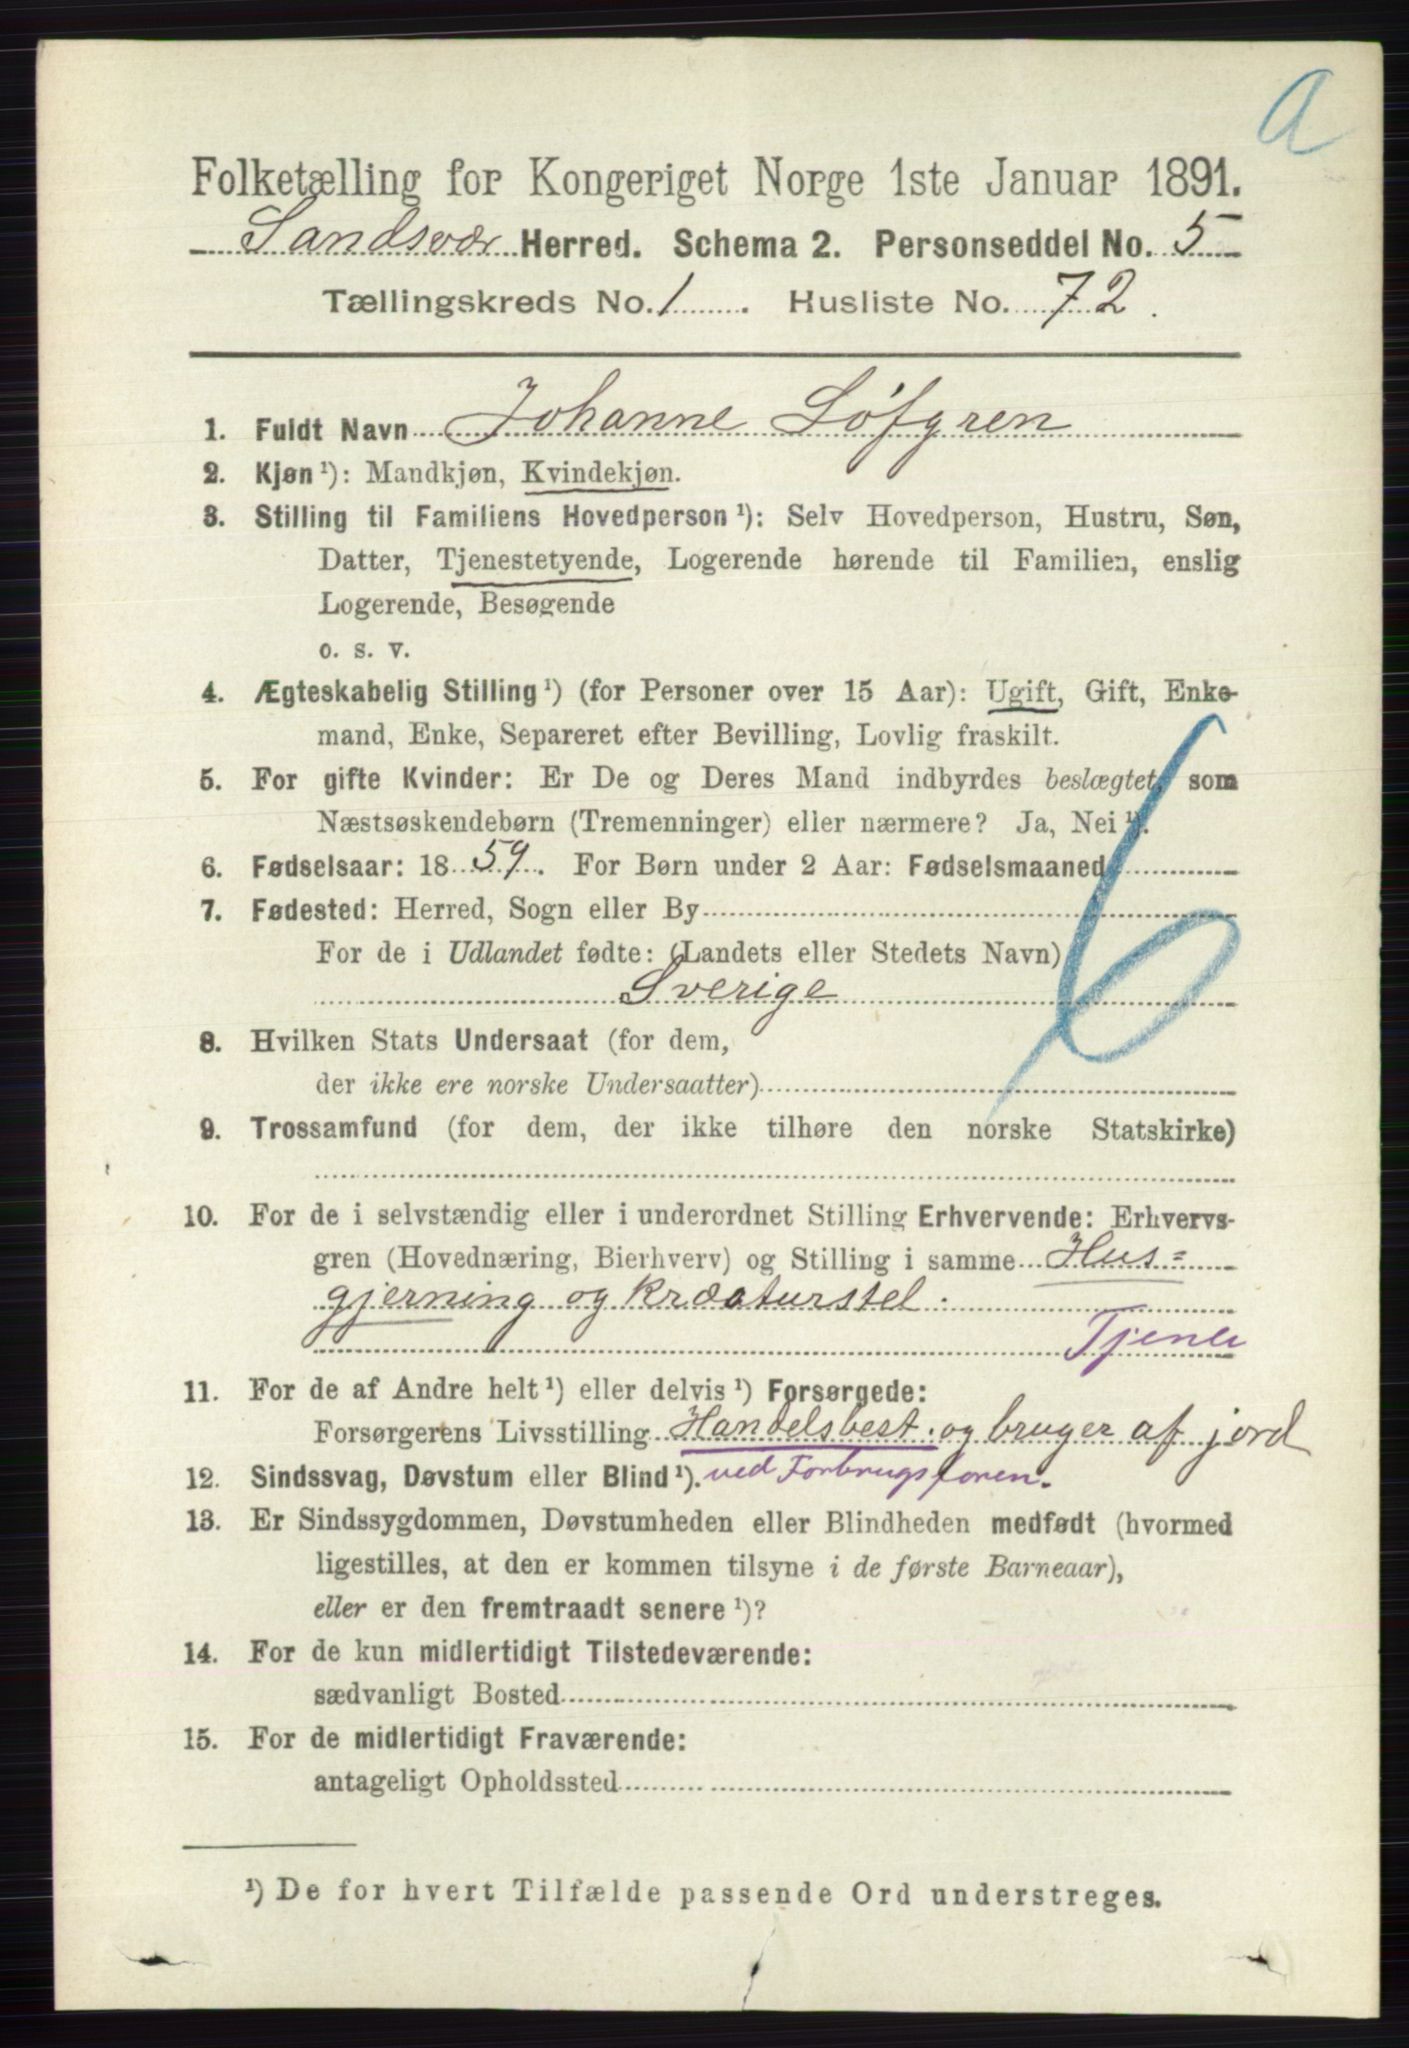 a
Folketælling for Kongeriget Norge 1ste Januar 1891.
Sandsvær Herred. Schema 2. Personseddel No. 5
Tællingskreds No. 1. Husliste No. 72.
1. Fuldt Navn Johanne Löfgren
2. Kjøn ¹): Mandkjøn, Kvindekjøn.
3. Stilling til Familiens Hovedperson ¹): Selv Hovedperson, Hustru, Søn,
Datter, Tjenestetyende, Logerende hørende til Familien, enslig
Logerende, Besøgende
o. s. v.
4. Ægteskabelig Stilling ¹) (for Personer over 15 Aar): Ugift, Gift, Enke-
mand, Enke, Separeret efter Bevilling, Lovlig fraskilt.
5. For gifte Kvinder: Er De og Deres Mand indbyrdes beslægtet, som
Næstsøskendebørn (Tremenninger) eller nærmere? Ja, Nei ¹).
6
6. Fødselsaar: 1859. For Børn under 2 Aar: Fødselsmaaned
7. Fødested: Herred, Sogn eller By
For de i Udlandet fødte: (Landets eller Stedets Navn)
Sverige
8. Hvilken Stats Undersaat (for dem,
der ikke ere norske Undersaatter)
9. Trossamfund (for dem, der ikke tilhøre den norske Statskirke)
10. For de i selvstændig eller i underordnet Stilling Erhvervende: Erhvervs-
gren (Hovednæring, Bierhverv) og Stilling i samme Hus=
gjerning og kreaturstel.
Tjener
11. For de af Andre helt ¹) eller delvis ¹) Forsørgede:
Forsørgerens Livsstilling Handelsbest. og bruger af jord
12. Sindssvag, Døvstum eller Blind ¹). ved Forbrugsforen.
13. Er Sindssygdommen, Døvstumheden eller Blindheden medfødt (hvormed
ligestilles, at den er kommen tilsyne i de første Barneaar),
eller er den fremtraadt senere ¹)?
14. For de kun midlertidigt Tilstedeværende:
sædvanligt Bosted
15. For de midlertidigt Fraværende:
antageligt Opholdssted
¹) De for hvert Tilfælde passende Ord understreges.